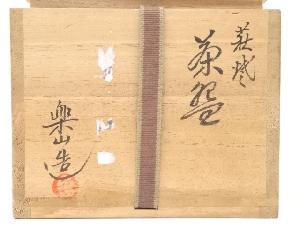 萩焼
茶盌
樂山造